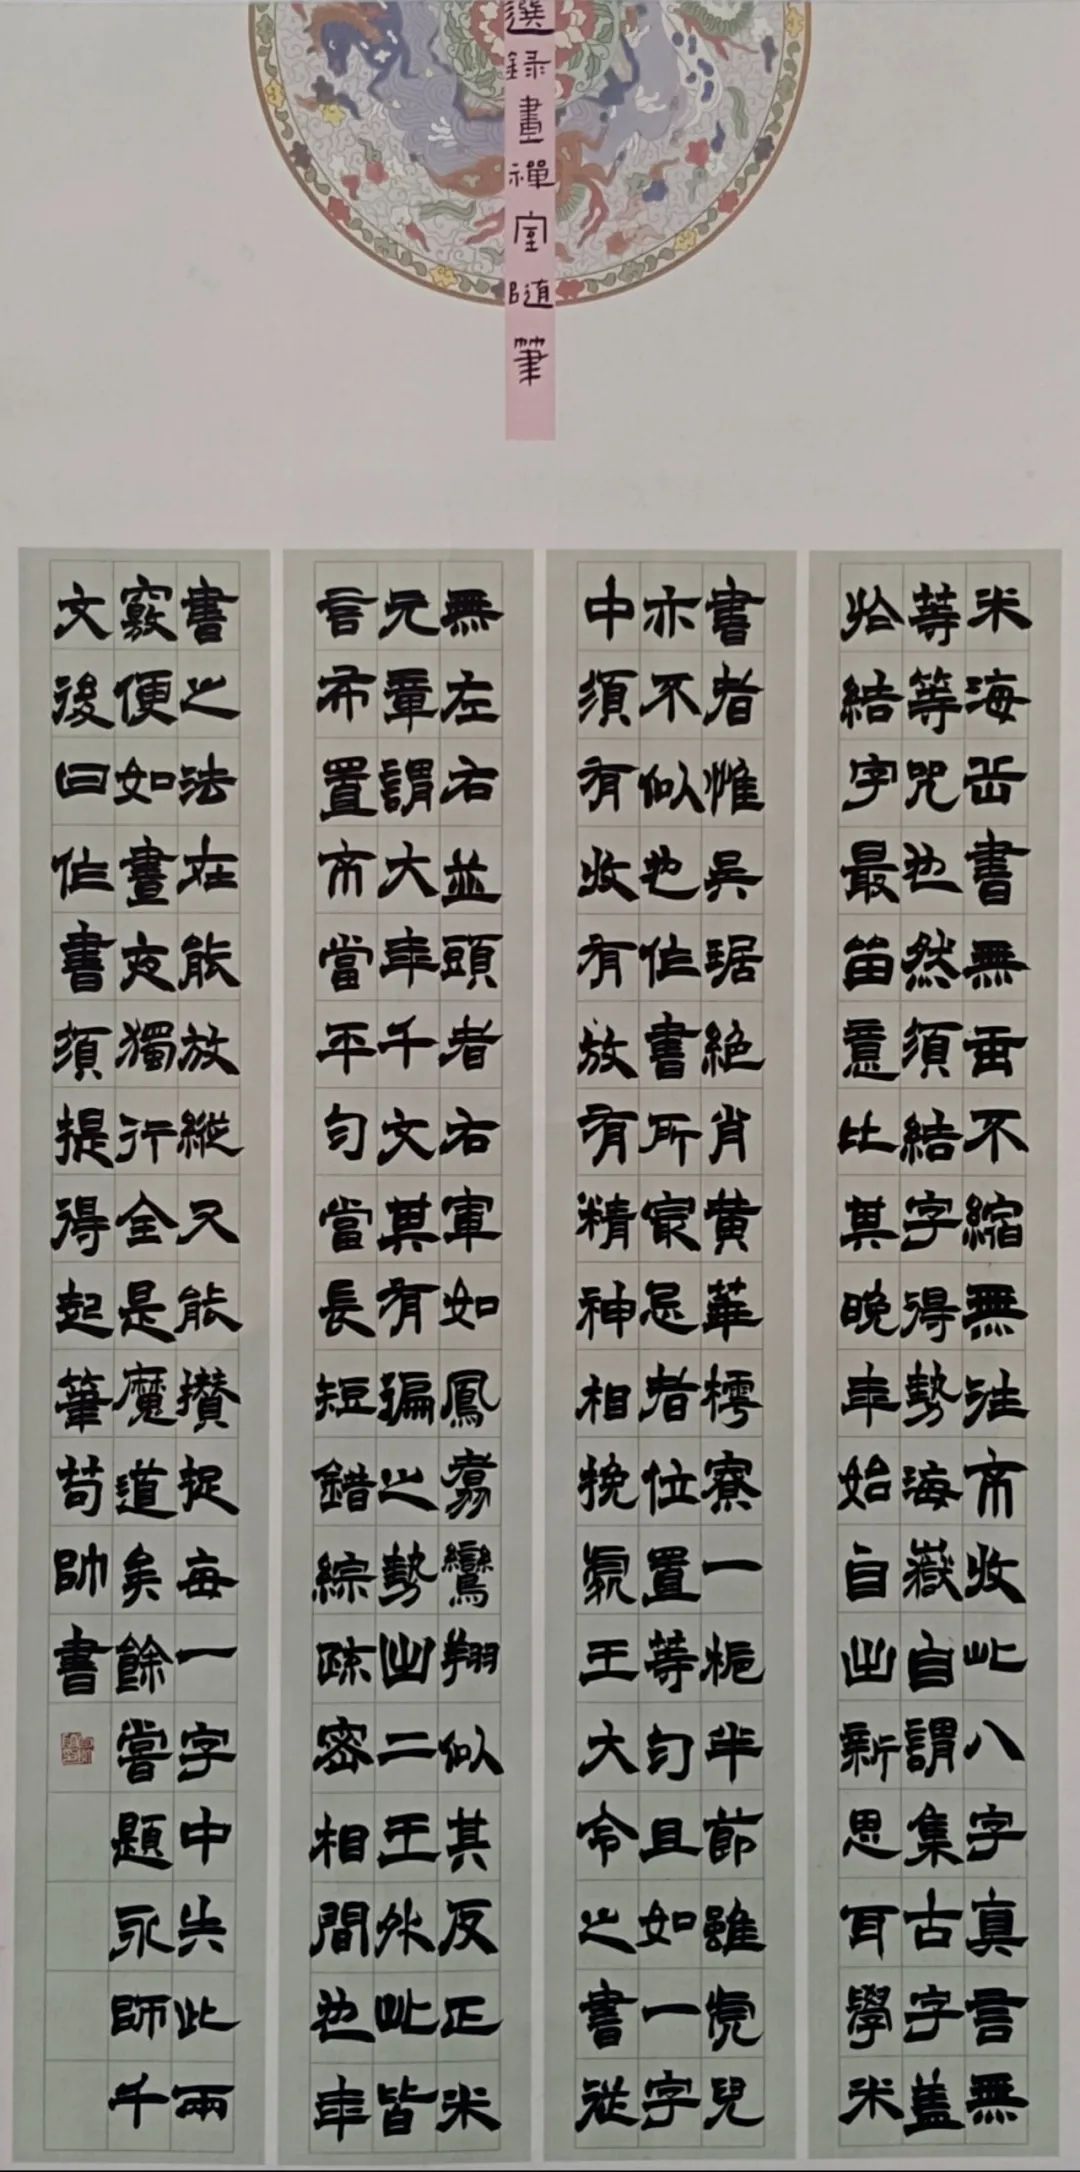 選錄畫禪室隨筆
米海岳書無垂不縮無往不收此八字真言無
等等咒也然須結字得勢海嶽自謂集古字蓋
於結字最留意比其晚年始自出新思耳學米
書者惟吳琚絕肖黃華樗寮一枙半節雖虎兒
亦不似也作書所最忌者位置等勻且如一字
中須有收有放有精神相挽處王大令之書從
無左右並頭者右軍如鳳翥鸞翔似其反正米
元章謂大年千文其有偏之勢出二王外此皆
言布置不當平勻當長短錯綜疏密相間也年
書之法在能放縱又能攢捉每一字中失此兩
竅便如晝夜獨行全是魔道矣餘嘗題永師千
文後曰作書須提得起筆苟帥書